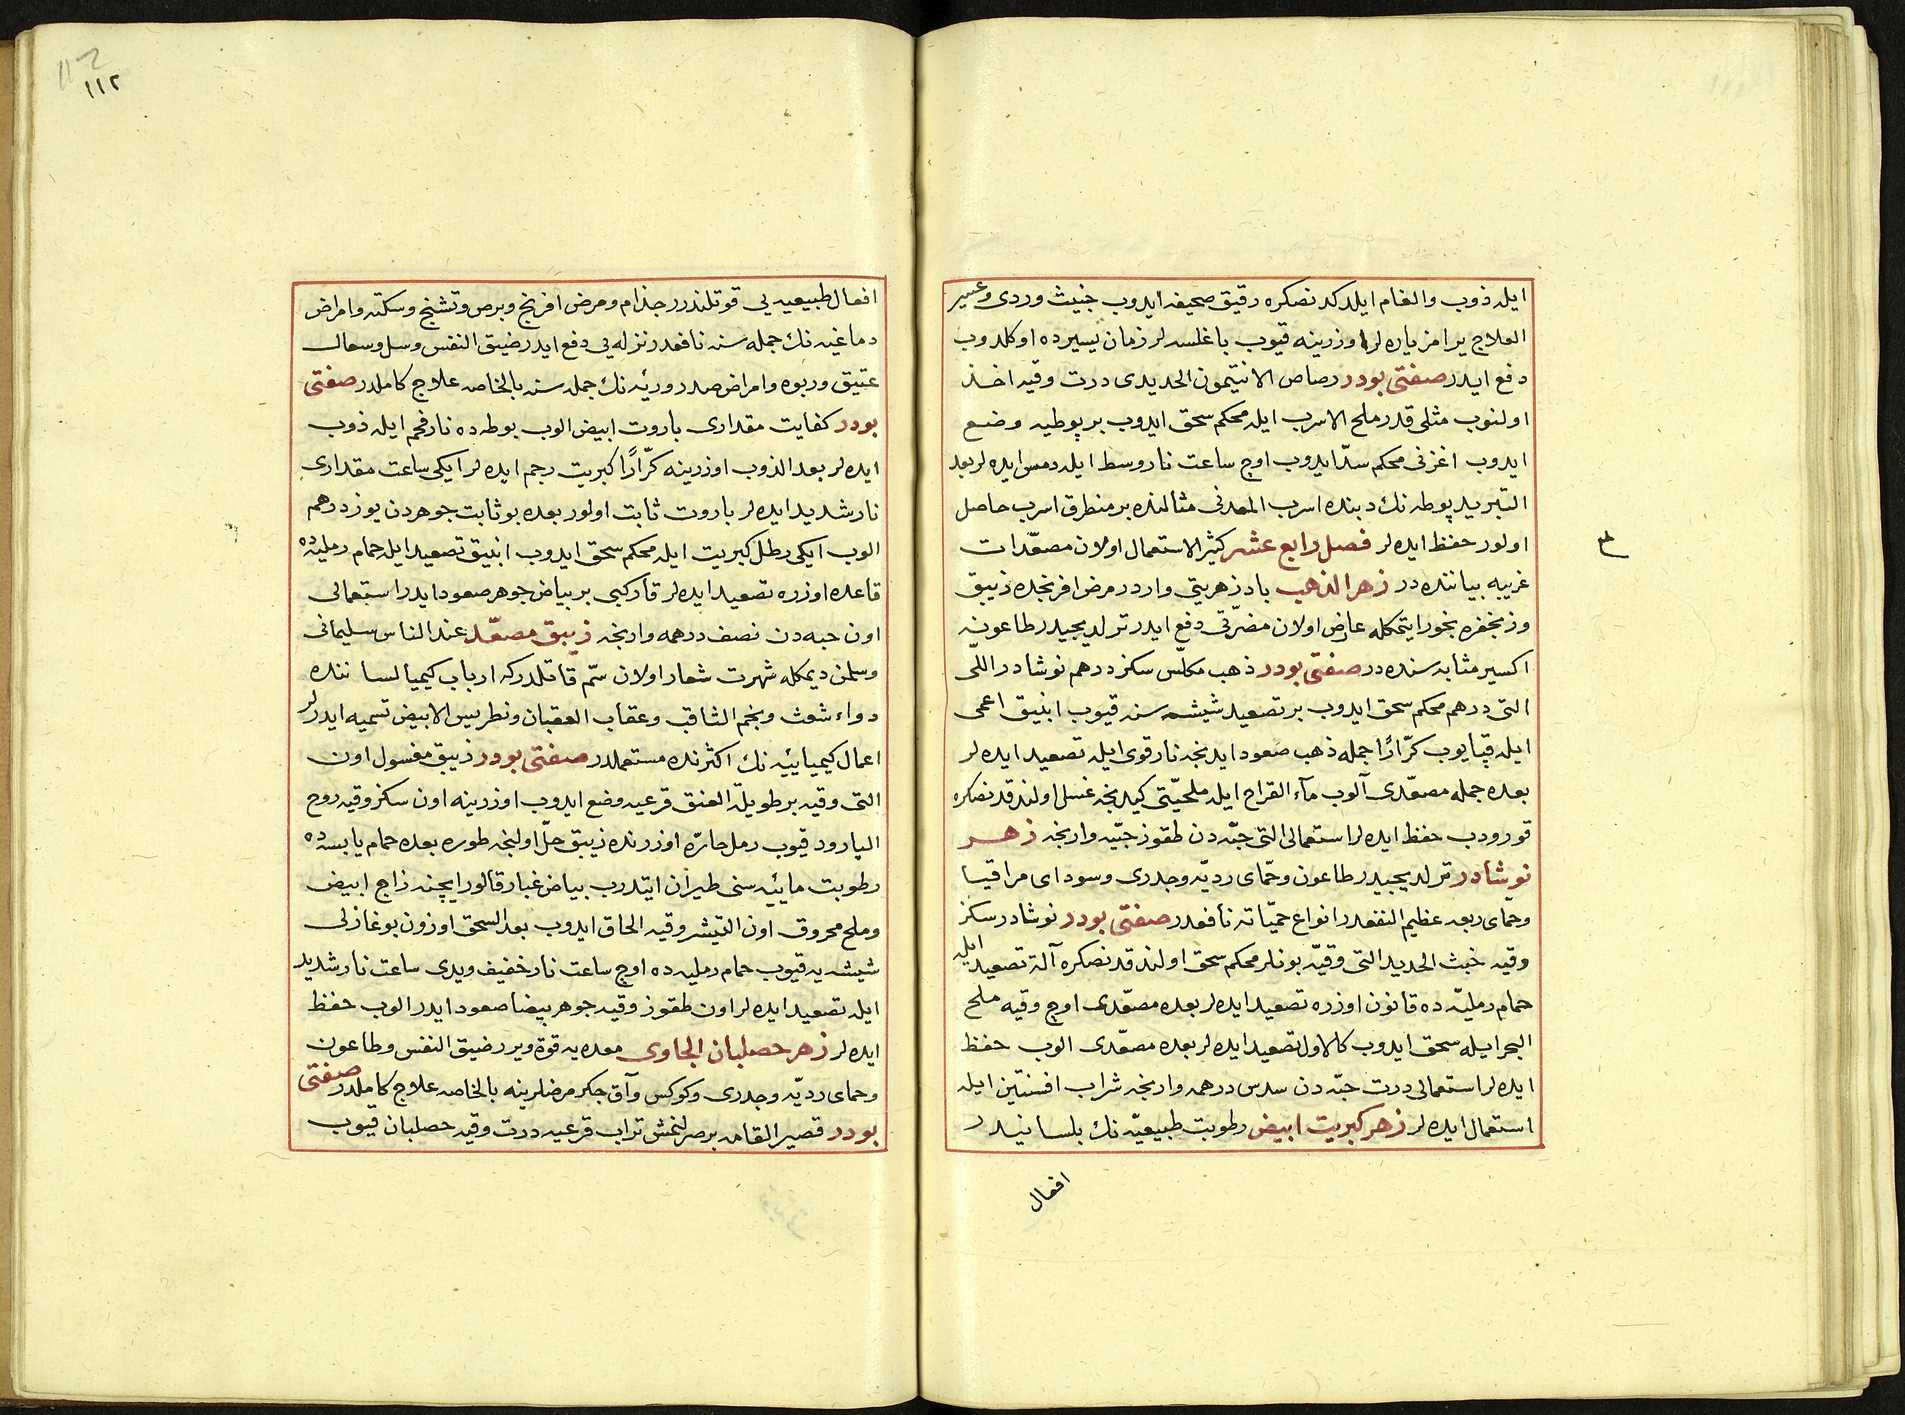 ايله ذوب والغام ايلدكد نصكره رقيق صحيفه ايدوب خبيث وردى وعسير
العلاج يرامز ياره لرا وزرينه قيوب باغلسه لر زمان يسيرده اوكلدوب
دفع ايدر صفتى بودر رصاص الانتيمون الحديدى درت وقيه اخذ
اولنوب مثلى قدر ملح الاسرب ايله محكم سحق ايدوب بر پوطيه وضع
ايدوب اغزنى محكم سدّ ايدوب اوچ ساعت نار وسط ايله دمس ايده لر بعد
التبريد پوطه نك دبنده اسرب المعدنى مثالنده بر منطرق اسرب حاصل
اولور حفظ ايده لر فصل رابع عشر كثير الاستعمال اولان مصعّدات
غريبه بياننده در زهر الذهب بادزهريتى واردر مرض افرنجده زيبق
وزنجفره بخور ايتمكله عارض اولان مضرّتى دفع ايدر ترلديجيدر طاعونه
اكسير مثابه سنده در صفتى بودر ذهب مكلّس سكز درهم نوشادر اللى
التى درهم محكم سحق ايدوب بر تصعيد شيشه سنه قيوب انبيق اعمى
ايله قپايوب كرّارًا جمله ذهب صعود ايدنجه نار قوى ايله تصعيد ايده لر
بعده جمله مصعّدى آلوب مآء القراح ايله ملحيّتى كيدنجه غسل اولندقد نصكره
قورودب حفظ ايده لر استعمالى التى حبّه دن طقوز حبّيه وارنجه زهر
نوشادر ترلديجيدر طاعون وحمّاى رديّه وجدرى وسوداى مراقيا
وحماى ربعه عظيم النفعدر انواع حميّاته نافعدر صفتى بودر نوشادر سكز
وقيه خبث الحديد التى وقيّه بونلر محكم سحق اولندقد نصكره آلة تصعيد ايله
حمام رمليّه ده قانون اوزره تصعيد ايده لر بعده مصعّدى اوچ وقيه ملح
البحر ايله سحق ايدوب كالاول تصعيد ايده لر بعده مصعّدى الوب حفظ
ايده لر استعمالى درت حبّه دن سدس درهمه وارنجه شراب افسنتين ايله
استعمال ايده لر زهر كبريت ابيض رطوبت طبيعيّه نك بلسانيدر
افعال
١١٢
افعال طبيعيه يى قوتلندرر جذام ومرض افرنج وبرص وتشنج وسكته وامراض
دماغيه نك جمله سنه نافعدر نزله يى دفع ايدر ضيق النفس وسل وسعال
عتيق وربوه وامراض صدر ورئه نك جمله سنه بالخاصه علاج كاملدر صفتى
بودر كفايت مقدارى باروت ابيض الوب بوطه ده نار فحم ايله ذوب
ايده لر بعد الذوب اوزرينه كرّارًا كبريت رجم ايده لر ايكى ساعت مقدارى
نار شديد ايده لر باروت ثابت اولور بعده بو ثابت جوهردن يوز درهم
الوب ايكى رطل كبريت ايله محكم سحق ايدوب انبيق تصعيد ايله حمام رمليه ده
قاعده اوزره تصعيد ايده لر قار كبى بر بياض جوهر صعود ايدر استعمالى
اون حبه دن نصف درهمه وارنجه زيبق مصعّد عند الناس سليمانى
وسلمن ديمكله شهرت شعار اولان سمّ قاتلدركه ارباب كيميا لساننده
دواء شعث ونجم الثاقب وعقاب العقبان ونطريس الابيض تسميه ايدرلر
اعمال كيميائيه نك اكثرنده مستعملدر صفتى بودر زيبق مغسول اون
التى وقيه بر طويلة العنق قرعيه وضع ايدوب اوزرينه اون سكز وقيه روح
البارود قيوب رمل حارّه اوزرنده زيبق حلّ اولنجه طوره بعده حمام يابسه ده
رطوبت مائيه سنى طيران ايتدرب بياض غبار قالور ايچنه زاج ابيض
وملح محروق اون التيشر وقيه الحاق ايدوب بعد السحق اوزون بوغازلى
شيشه يه قيوب حمام رمليه ده اوچ ساعت نار خفيف ويدى ساعت نار شديد
ايله تصعيد ايده لر اون طقوز وقيه جوهر بيضا صعود ايدر الوب حفظ
ايده لر زهر حصلبان الجاوى معده يه قوة ويرر ضيق النفس وطاعون
وحماى رديّه وجدرى وكوكس وآق جكر مرضلرينه بالخاصه علاج كاملدر صفتى
بودر قصير القامه بر صرلنمش تراب قرعيه درت وقيه حصلبان قيوب